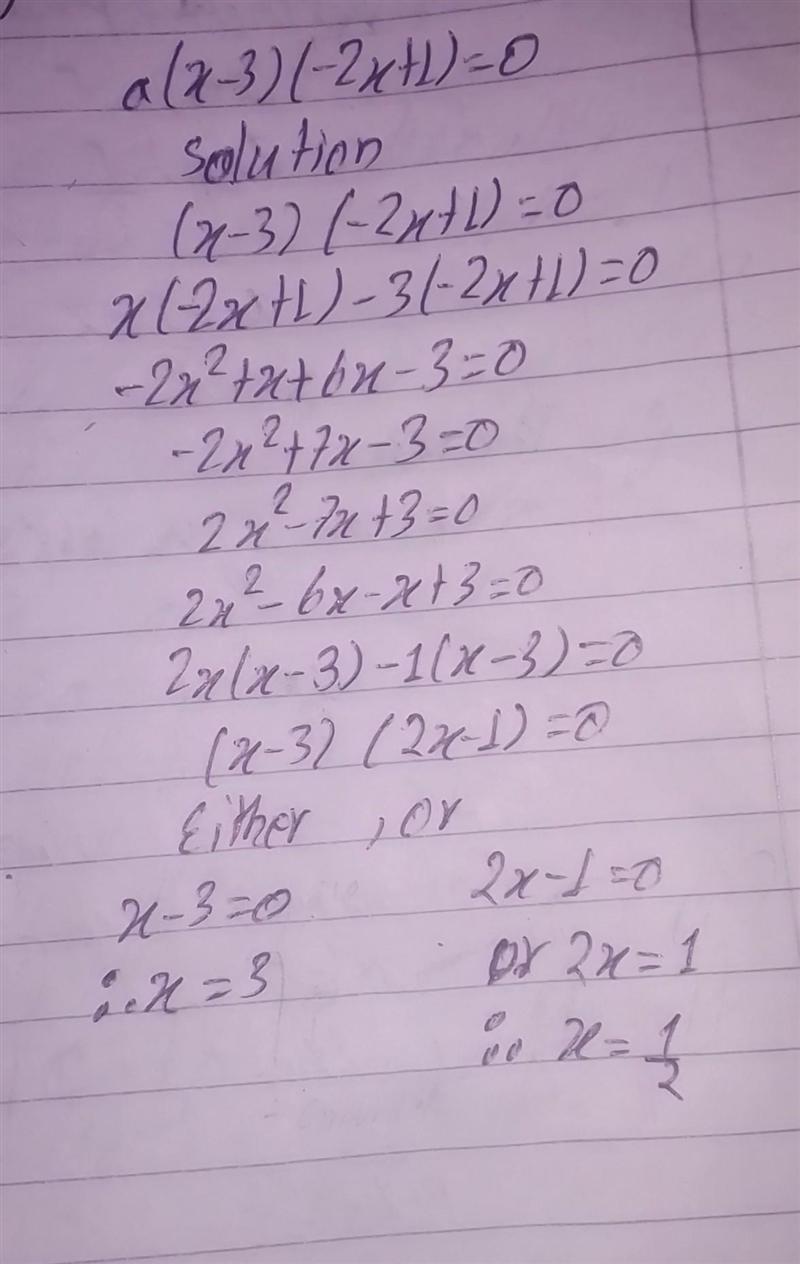 a(x-3)(-2x+1)=0
Solution
(x-3) (-2x+1)=0
x(-2x+1)-3(-2x+1)=0
-2x²+x+6x-3=0
-2x²+7x-3=0
2x²-7x+3=0
2x²-6x-x+3=0
2x(x-3)-1(x-3)=0
(x-3) (2x-1)=0
Either , or
x-3=0 2x-1=0
∴x=3 or 2x=1
∴ x=1/2